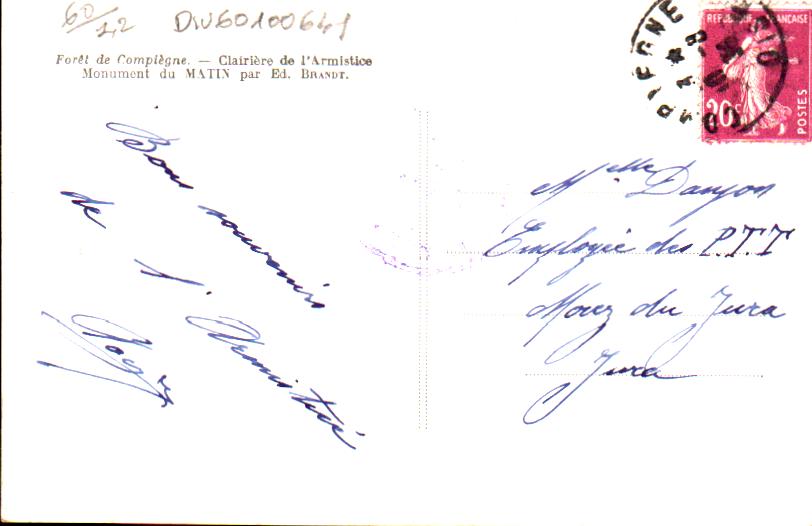 60/12 DIV60100649
Forêt de Complègne. — Clairière de l'Armistice
Monument du MATIN par Ed. BRANDT.
REPUBLIQUE FRANÇAISE
20c
POSTES
Bon souvenir
de l'Armistice
Roger
Melle Danyon
Employée des P.T.T
Morez du Jura
Jura